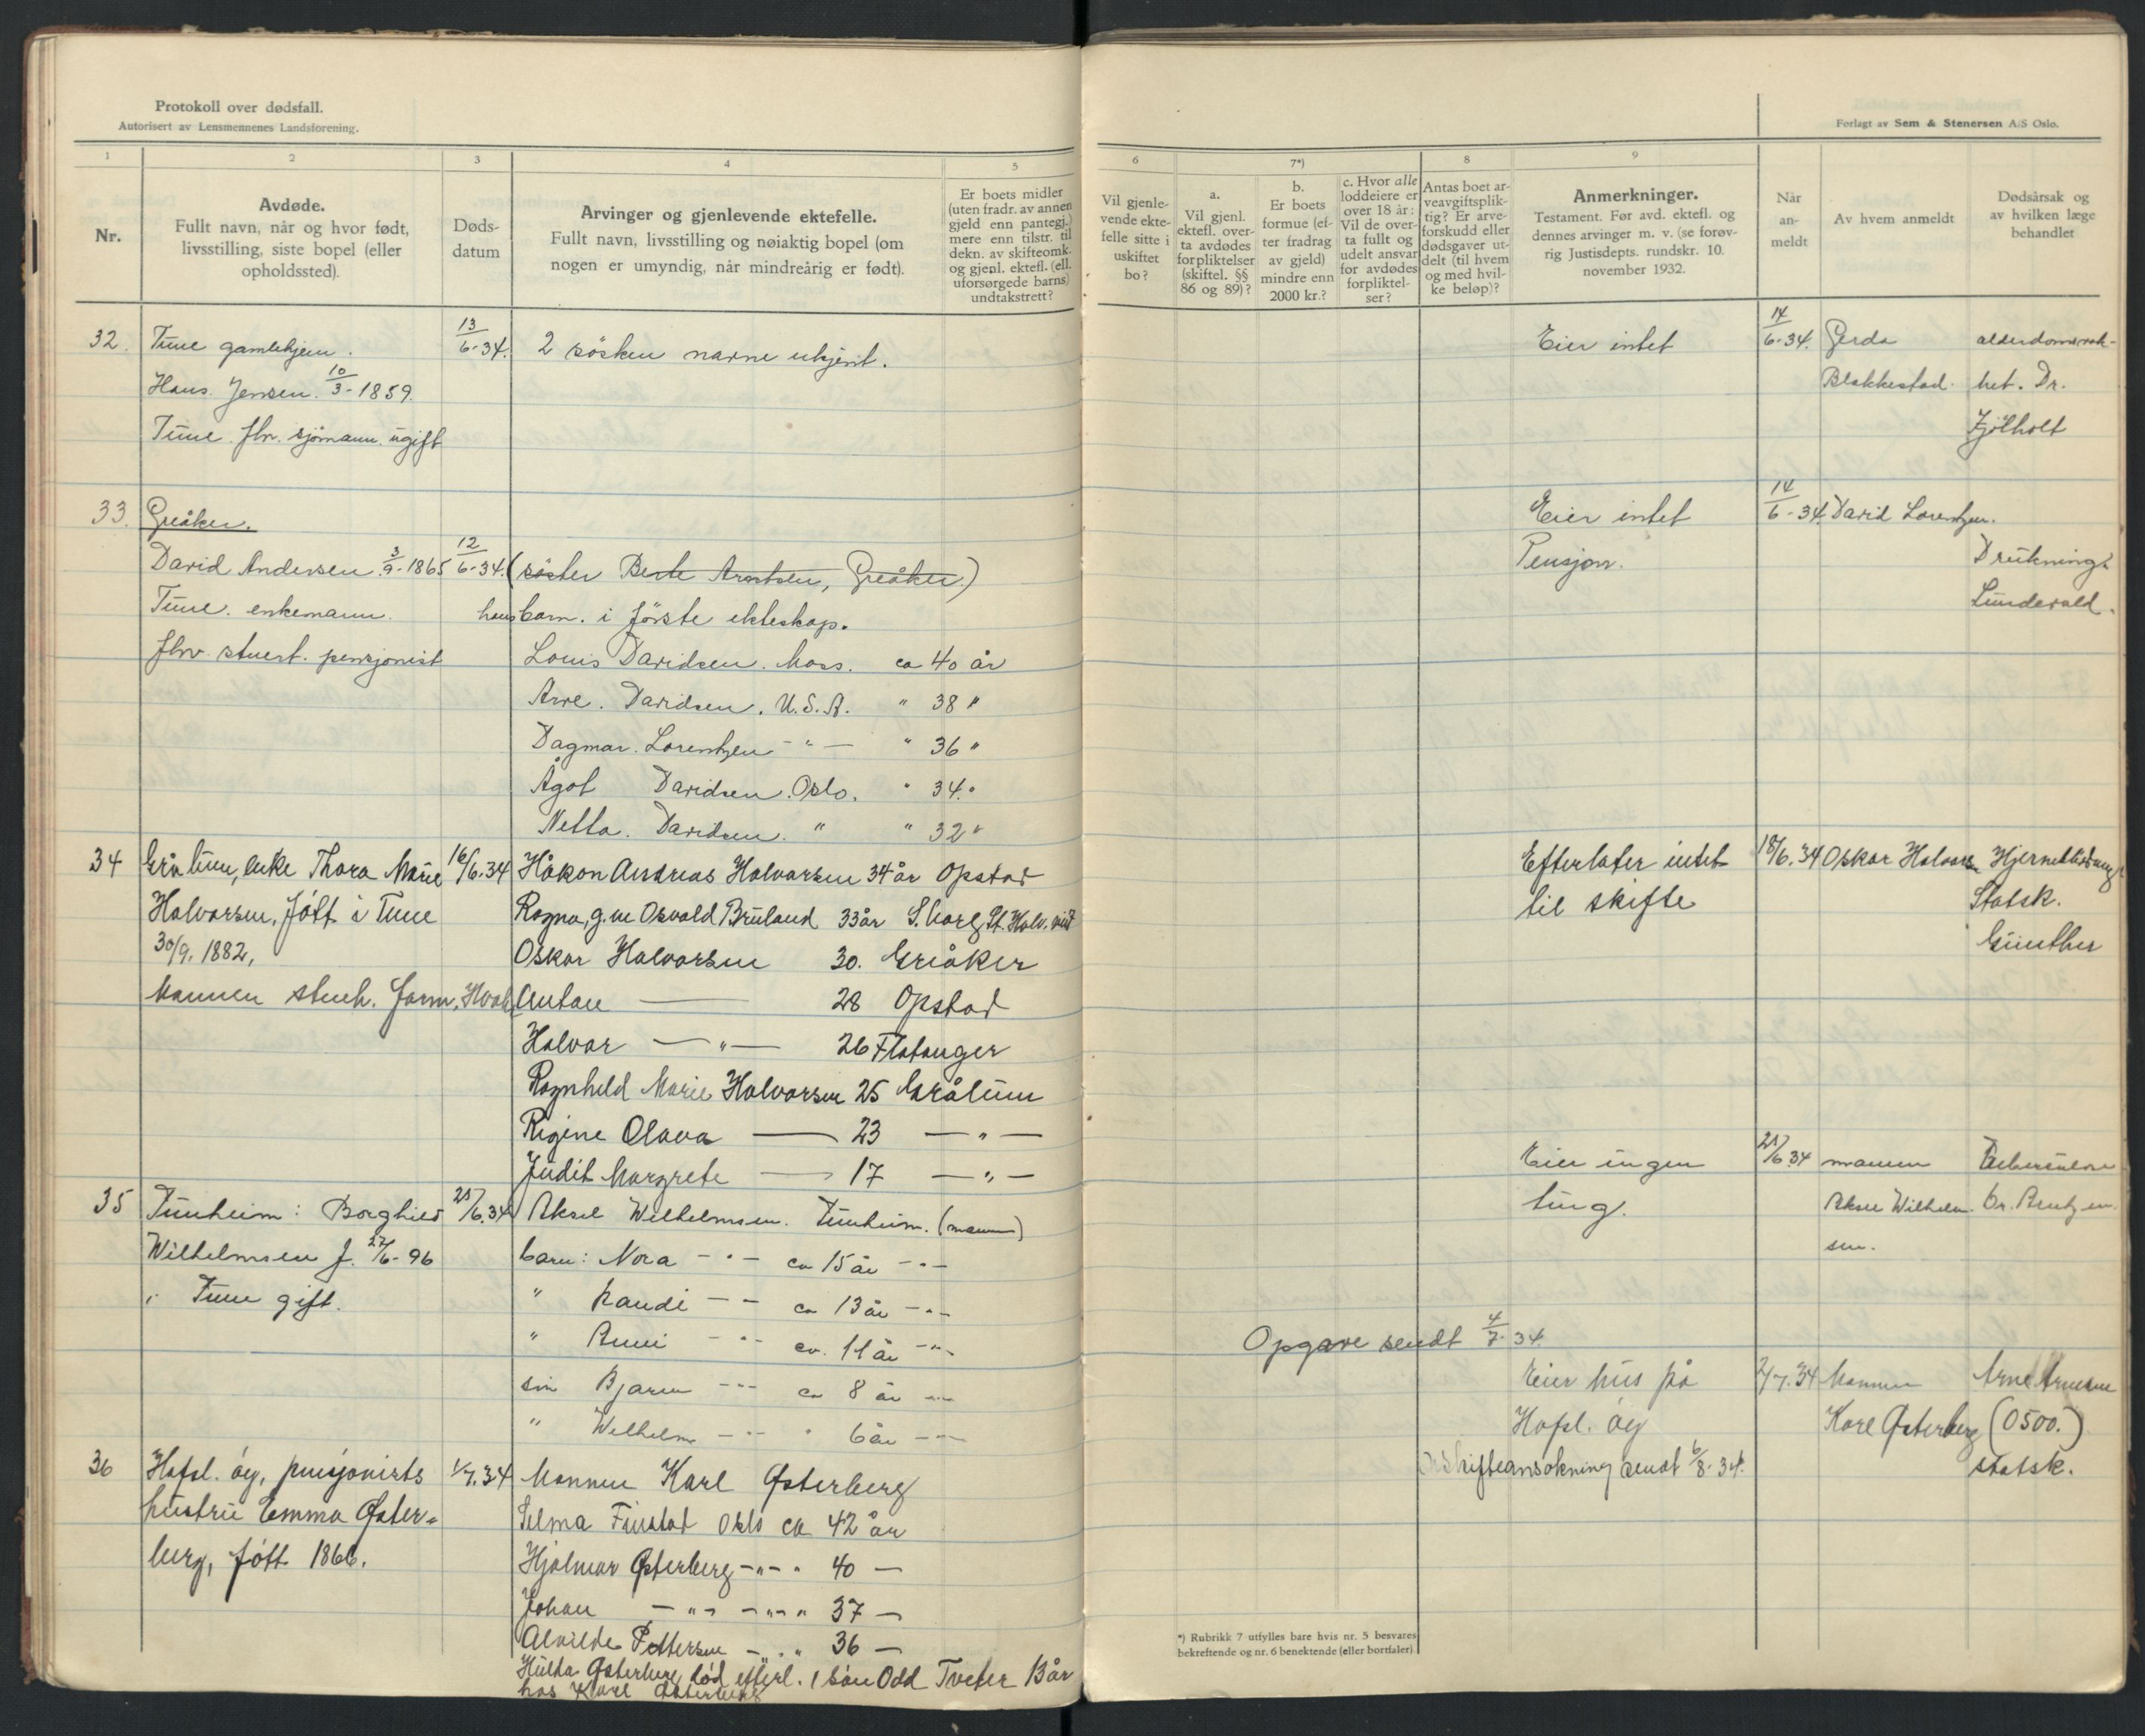 Protokoll over dødsfall.
Autorisert av Lensmennenes Landsforening.
Forlagt av Sem & Stenersen A/S Oslo.
1
2
3
4
5
6
7*)
8
9
Nr.
Avdøde.
Fullt navn, når og hvor født,
livsstilling, siste bopel (eller
opholdssted).
Døds-
datum
Arvinger og gjenlevende ektefelle.
Fullt navn, livsstilling og nøiaktig bopel (om
nogen er umyndig, når mindreårig er født).
Er boets midler
(uten fradr. av annen
gjeld enn pantegj.)
mere enn tilstr. til
dekn. av skifteomk.
og gjenl. ektefl. (ell.
uforsørgede barns)
undtakstrett?
Vil gjenle-
vende ekte-
felle sitte i
uskiftet
bo?
a.
Vil gjenl.
ektefl. over-
ta avdødes
forpliktelser
(skiftel. §§
86 og 89)?
b.
Er boets
formue (ef-
ter fradrag
av gjeld)
mindre enn
2000 kr.?
c. Hvor alle
loddeiere er
over 18 år:
Vil de over-
ta fullt og
udelt ansvar
for avdødes
forpliktel-
ser?
Antas boet ar-
veavgiftsplik-
tig? Er arve-
forskudd eller
dødsgaver ut-
delt (til hvem
og med hvil-
ke beløp)?
Anmerkninger.
Testament. Før avd. ektefl. og
dennes arvinger m. v. (se forøv-
rig Justisdepts. rundskr. 10.
november 1932.
Når
an-
meldt
Av hvem anmeldt
Dødsårsak og
av hvilken læge
behandlet
32. Tune gamlehjem. 13/6-34. 2 søsken navne ukjent. Eier intet 14/6-34. Gerda
Hans Jensen. 10/3-1859. Blakkestad. het. Dr.
Tune. fhv. sjømann. ugift
33. Greåker. Eier intet 14/6-34 David Lorentzen.
David Andersen 3/9-1865 12/6-34. (søster Berte Arntsen, Greåker.) Pensjon. Drukning.
Tune. enkemann. hans barn. i første ekteskap. Lundevald.
fhv. stuert. pensjonist Louis Davidsen. Moss. ca 40 år
Arve. Davidsen. U.S.A. " 38 "
Dagmar. Lorentzen - " - " 36 "
Ågot Davidsen. Oslo. " 34 "
Netta. Davidsen. " " 32 "
34 Grålum, enke Thora Marie 16/6.34 Håkon Andreas Halvorsen 34 år Opstad Efterlater intet 18/6.34 Oskar Halvorsen
Halvorsen, født i Tune Ragna, g.m Osvald Bruland 33 år til skifte Statsk.
30/9. 1882, Oskar Halvorsen 30. Greåker Günther
Mannen Anton — 28 Opstad
Halvor — " — 26 Flatanger
Ragnhild Marie Halvorsen 25 Grålum
Rigine Olava — 23 — " —
Judit Margrete — 17 — " —
35 Tunheim: Borghild 21/6.34 Aksel Wilhelmsen. Tunheim. (mannen) Eier ingen ting. 21/6.34 mannen Tuberkulose
Wilhelmsen f. 27/6-96 barn: Nora - " - ca 15 år - " - Aksel Wilhelm-
i Tune gift. " Randi - " - ca 13 år - " - sen.
" Anni - " - ca. 11 år - " - Opgave sendt 4/7-34.
søn Bjarne - " - ca 8 år - " -
" Wilhelm - " - " 6 år - " -
36 Hafsl. øy, pensjonists 1/7.34 Mannen Karl Østerberg Eier hus på 2/7.34 Mannen
hustru Emma Øster- Selma Finstad Oslo ca 42 år Hafsl. øy Karl Østerberg (0500.)
berg, født 1866. Hjalmar Østerberg - " - " 40 — Skifteansøkning sendt 6/8-34. statsk.
Johan - " - - " - " 37 —
Alvilde Pettersen - " - " 36 —
Hulda Østerberg død efterl. 1 søn Odd Tveter 13 år
hos Karl Østerberg
*) Rubrikk 7 utfylles bare hvis nr. 5 besvares
bekreftende og nr. 6 benektende (eller bortfaler)